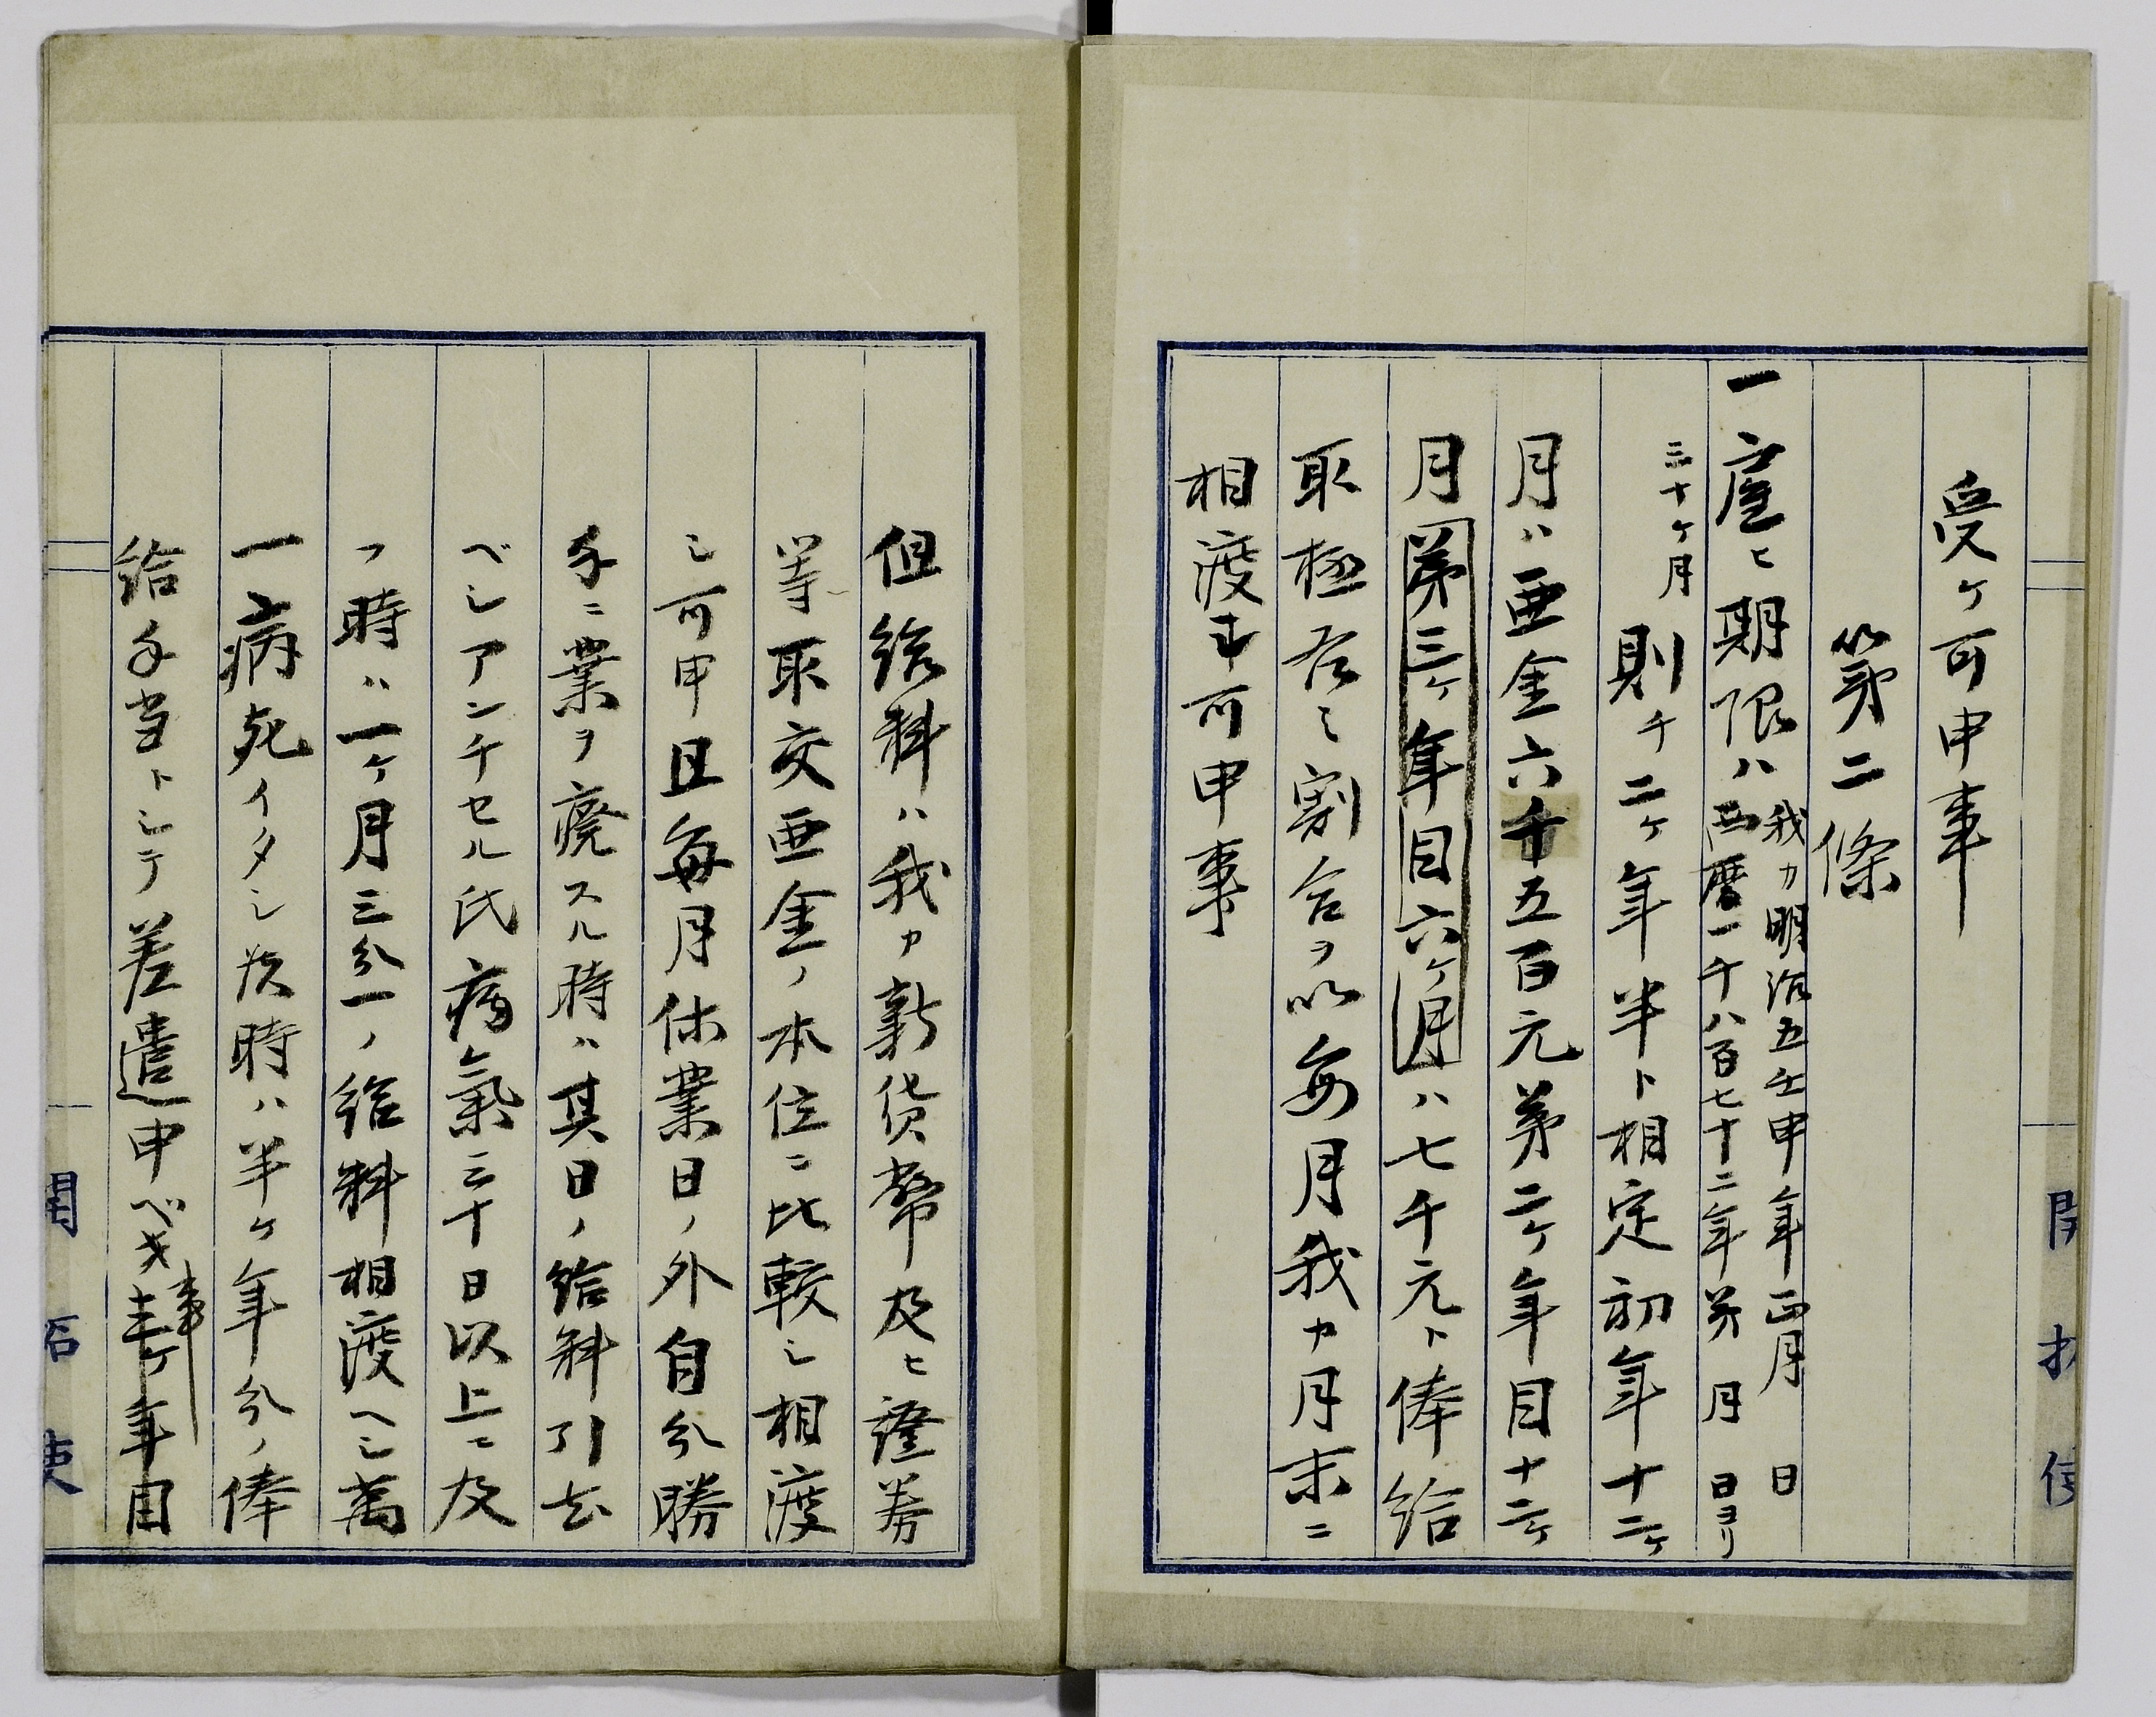 受ケ可申事
第二條
一雇ヒ期限ハ我カ明治五壬申年正月　日
西暦一千八百七十二年第　月　日ヨリ
三十ケ月則チ二ケ年半ト相定初年十二ケ
月ハ亜金六千五百元第二ケ年目十二ケ
月第三ケ年目六ケ月ハ七千元ト俸給
取極右之割合ヲ以毎月我カ月末ニ
相渡可申事
開拓使
但給料ハ我カ新貨幣及ヒ證券
等取交亜金ノ本位ニ比較シ相渡
シ可申且毎月休業日ノ外自分勝
手ニ業ヲ廃スル時ハ其日ノ給料引去
ベシアンチセル氏病氣三十日以上ニ及
フ時ハ一ケ月三分一ノ給料相渡ヘシ萬
一病死イタシ候時ハ半ケ年分ノ俸
給手当トシテ差遣申ベキ事壱ケ年目
開拓使